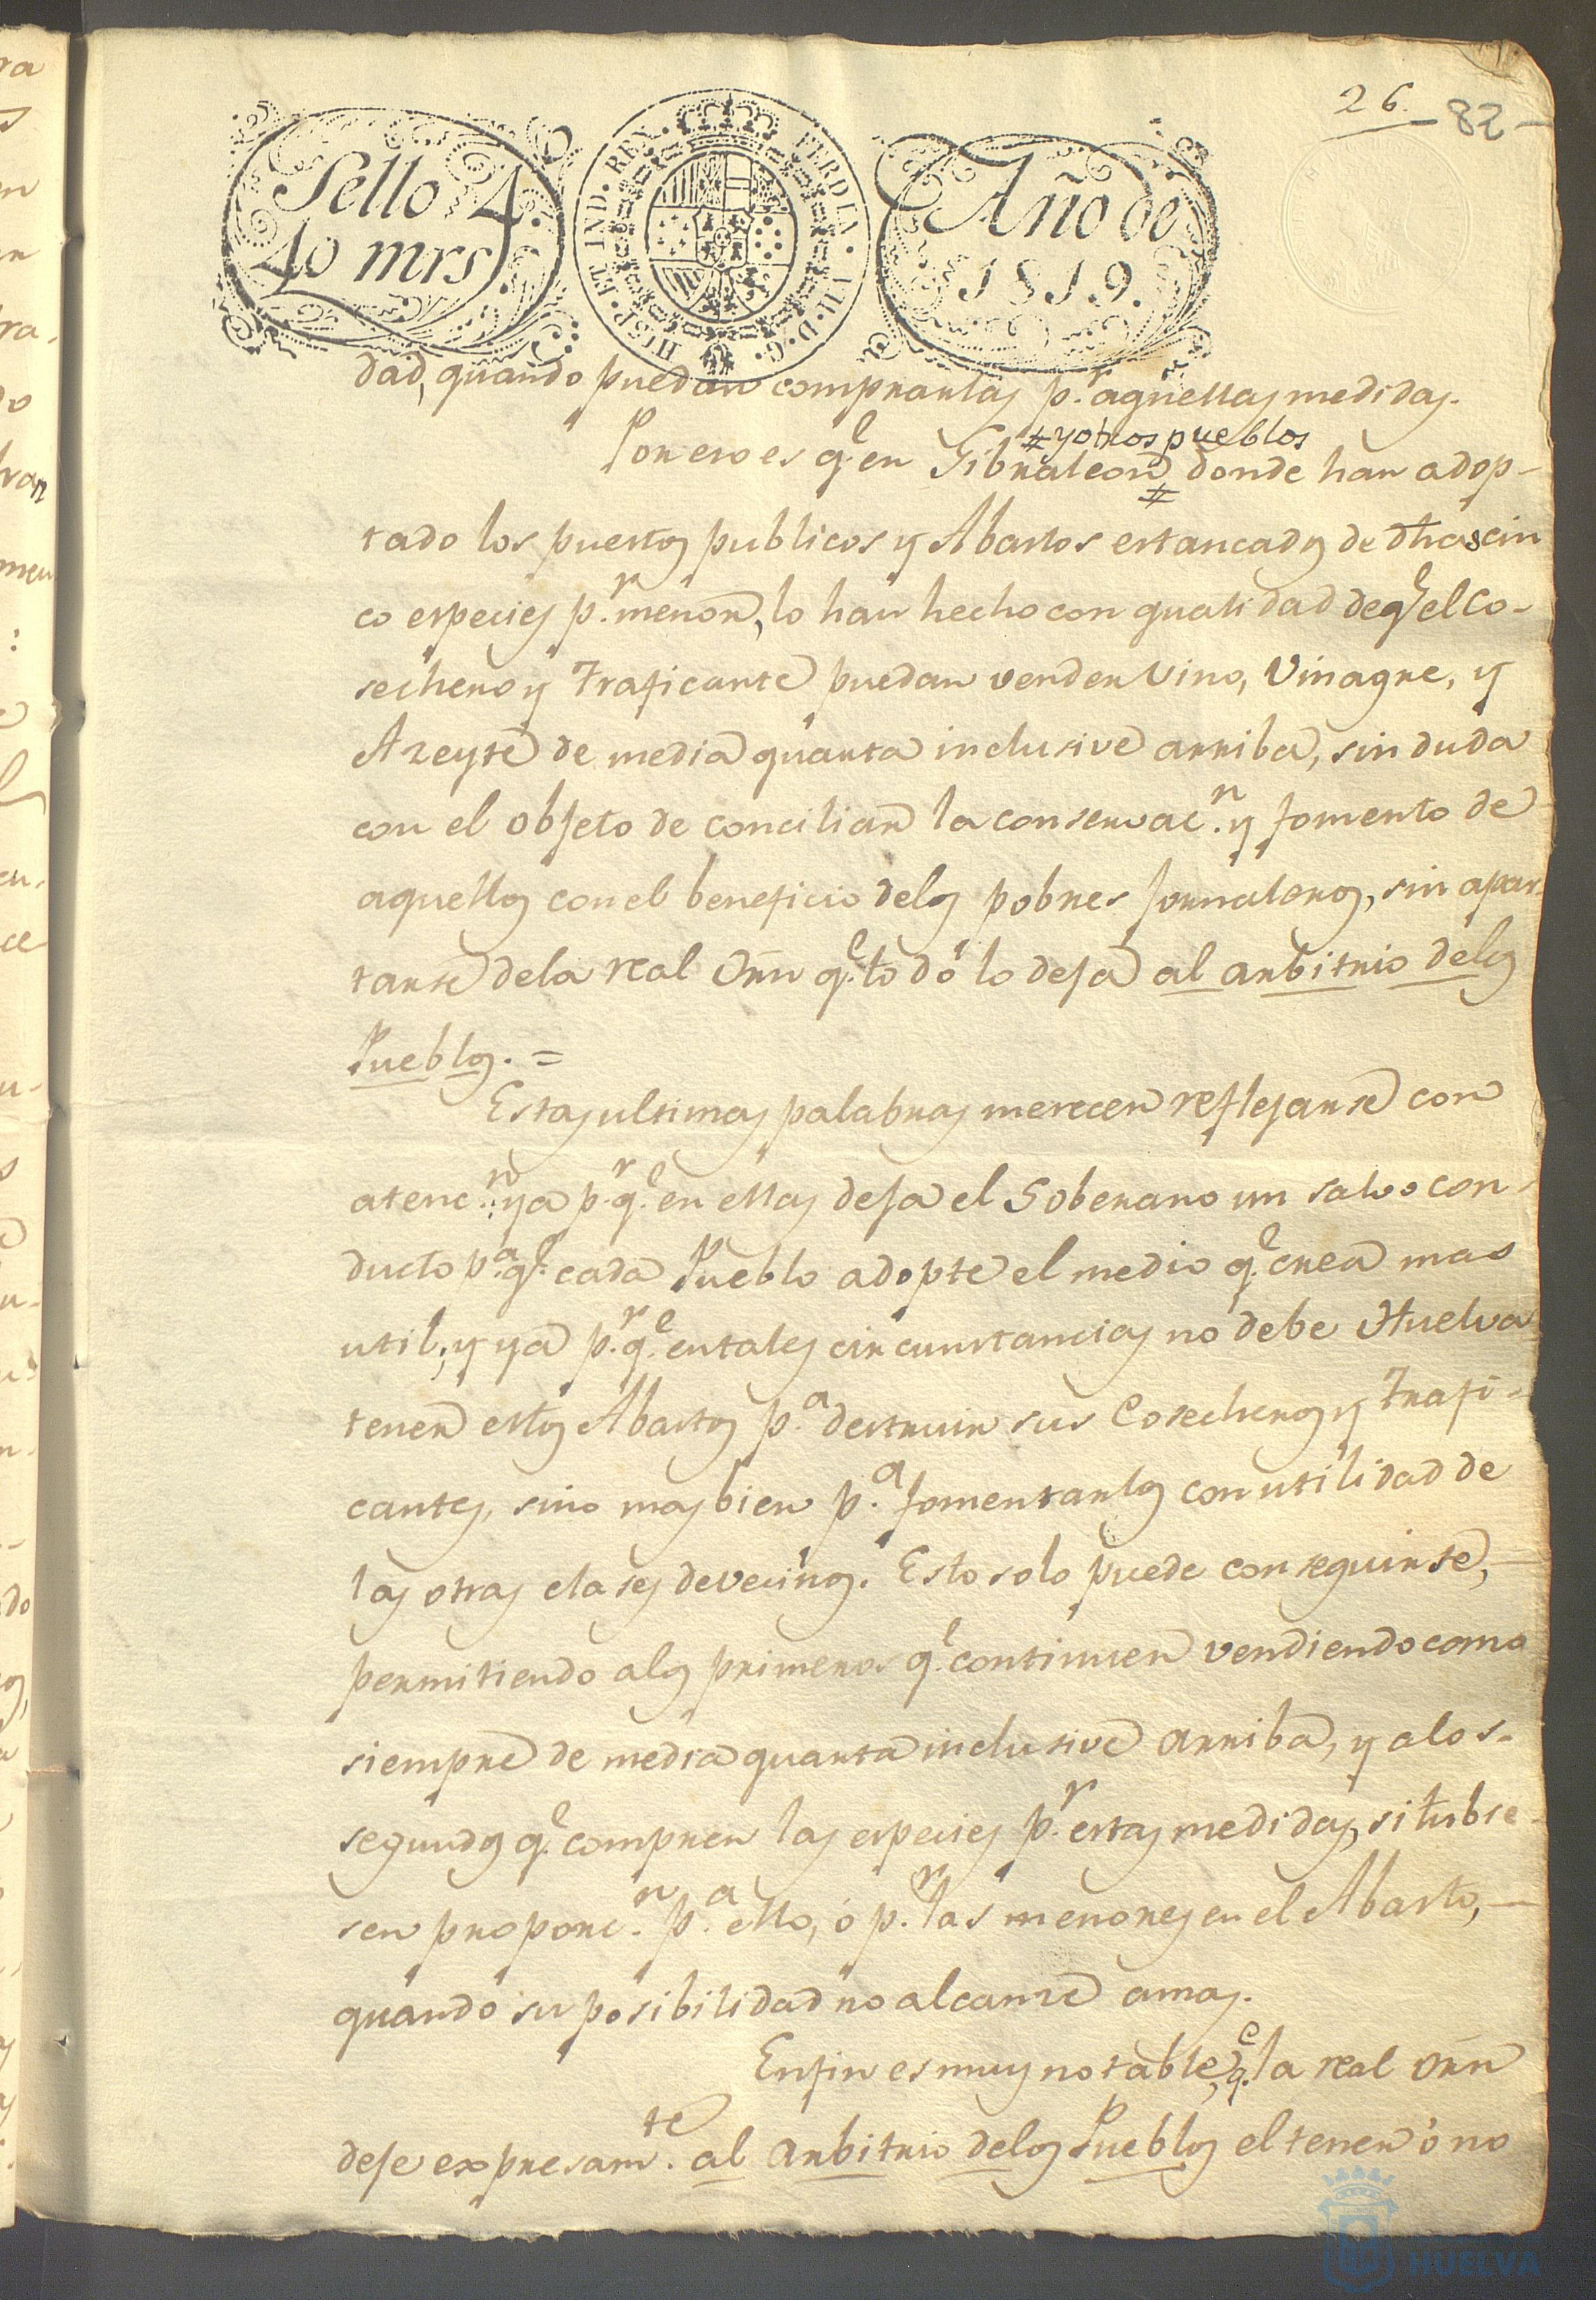 26. 82
Sello 4.
40 mrs.
HISP. ET IND. REX. FERDIN. VII. D. G.
Año de
1819.
dad, quando puedan comprarlas p.r aquellas medidas.
# y otros pueblos
Por eso es q.e en Gibraleon # donde han adop-
tado los puestos publicos y Abastos estancados de dhas cin
co especies p.r menor, lo han hecho con qualidad de q.e el Co-
sechero y Traficante puedan vender Vino, Vinagre, y
Azeyte de media quarta inclusive arriba, sin duda
con el objeto de conciliar la conservac.n y fomento de
aquellos con el beneficio delos pobres jornaleros, sin apar-
tarse dela real Orn q.e todo lo deja al arbitrio delos
Pueblos. =
Estas ultimas palabras merecen reflejarse con
atenc.n: ya p.r q.e en ellas deja el Soberano un salvo con-
ducto p.a q.e cada Pueblo adopte el medio q.e crea mas
util, y ya p.r q.e en tales circunstancias no debe Huelva
tener estos Abastos p.a destruir sus Cosecheros y Trafi-
cantes, sino mas bien p.a fomentarlos con utilidad de
las otras clases de vecinos. Esto solo puede conseguirse,
permitiendo alos primeros q.e continuen vendiendo como
siempre de media quarta inclusive arriba, y alos-
segundos q.e compren las especies p.r estas medidas, si tubie-
sen proporc.n p.a ello, ó p.r las menores en el Abasto,
quando su posibilidad no alcanze a mas.
Enfin es muy notable, q.e la real Orn
deje expresam.te al arbitrio delos Pueblos el tener ó no
HUELVA